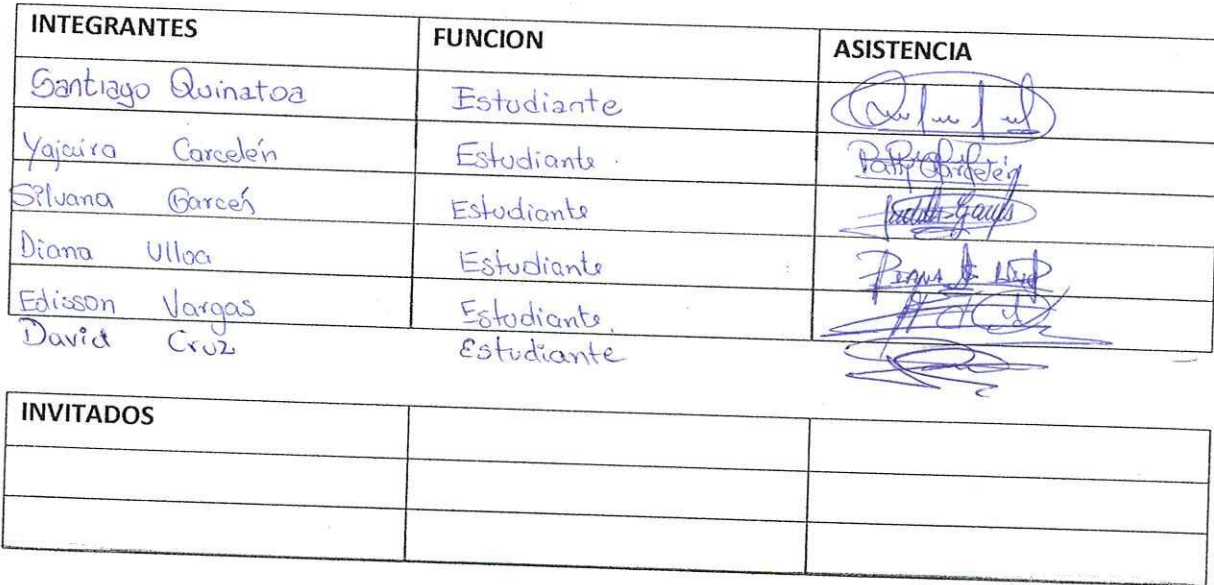 INTEGRANTES FUNCION ASISTENCIA
Santiago Quinatoa Estudiante
Yajaira Carcelén Estudiante. Paty Carcelén
Silvana Garcés Estudiante
Diana Ulloa Estudiante Diana
Edisson Vargas Estudiante.
David Cruz Estudiante
INVITADOS